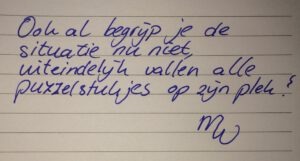 Ook al begrijp je de
situatie nu niet,
uiteindelijk vallen alle
puzzelstukjes op zijn plek.
MW